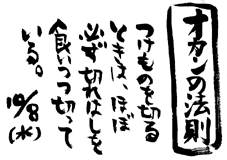 オカンの法則
つけものを切る
ときは、ほぼ
必ず切れはしを
食いつつ切って
いる。
10/8
(水)